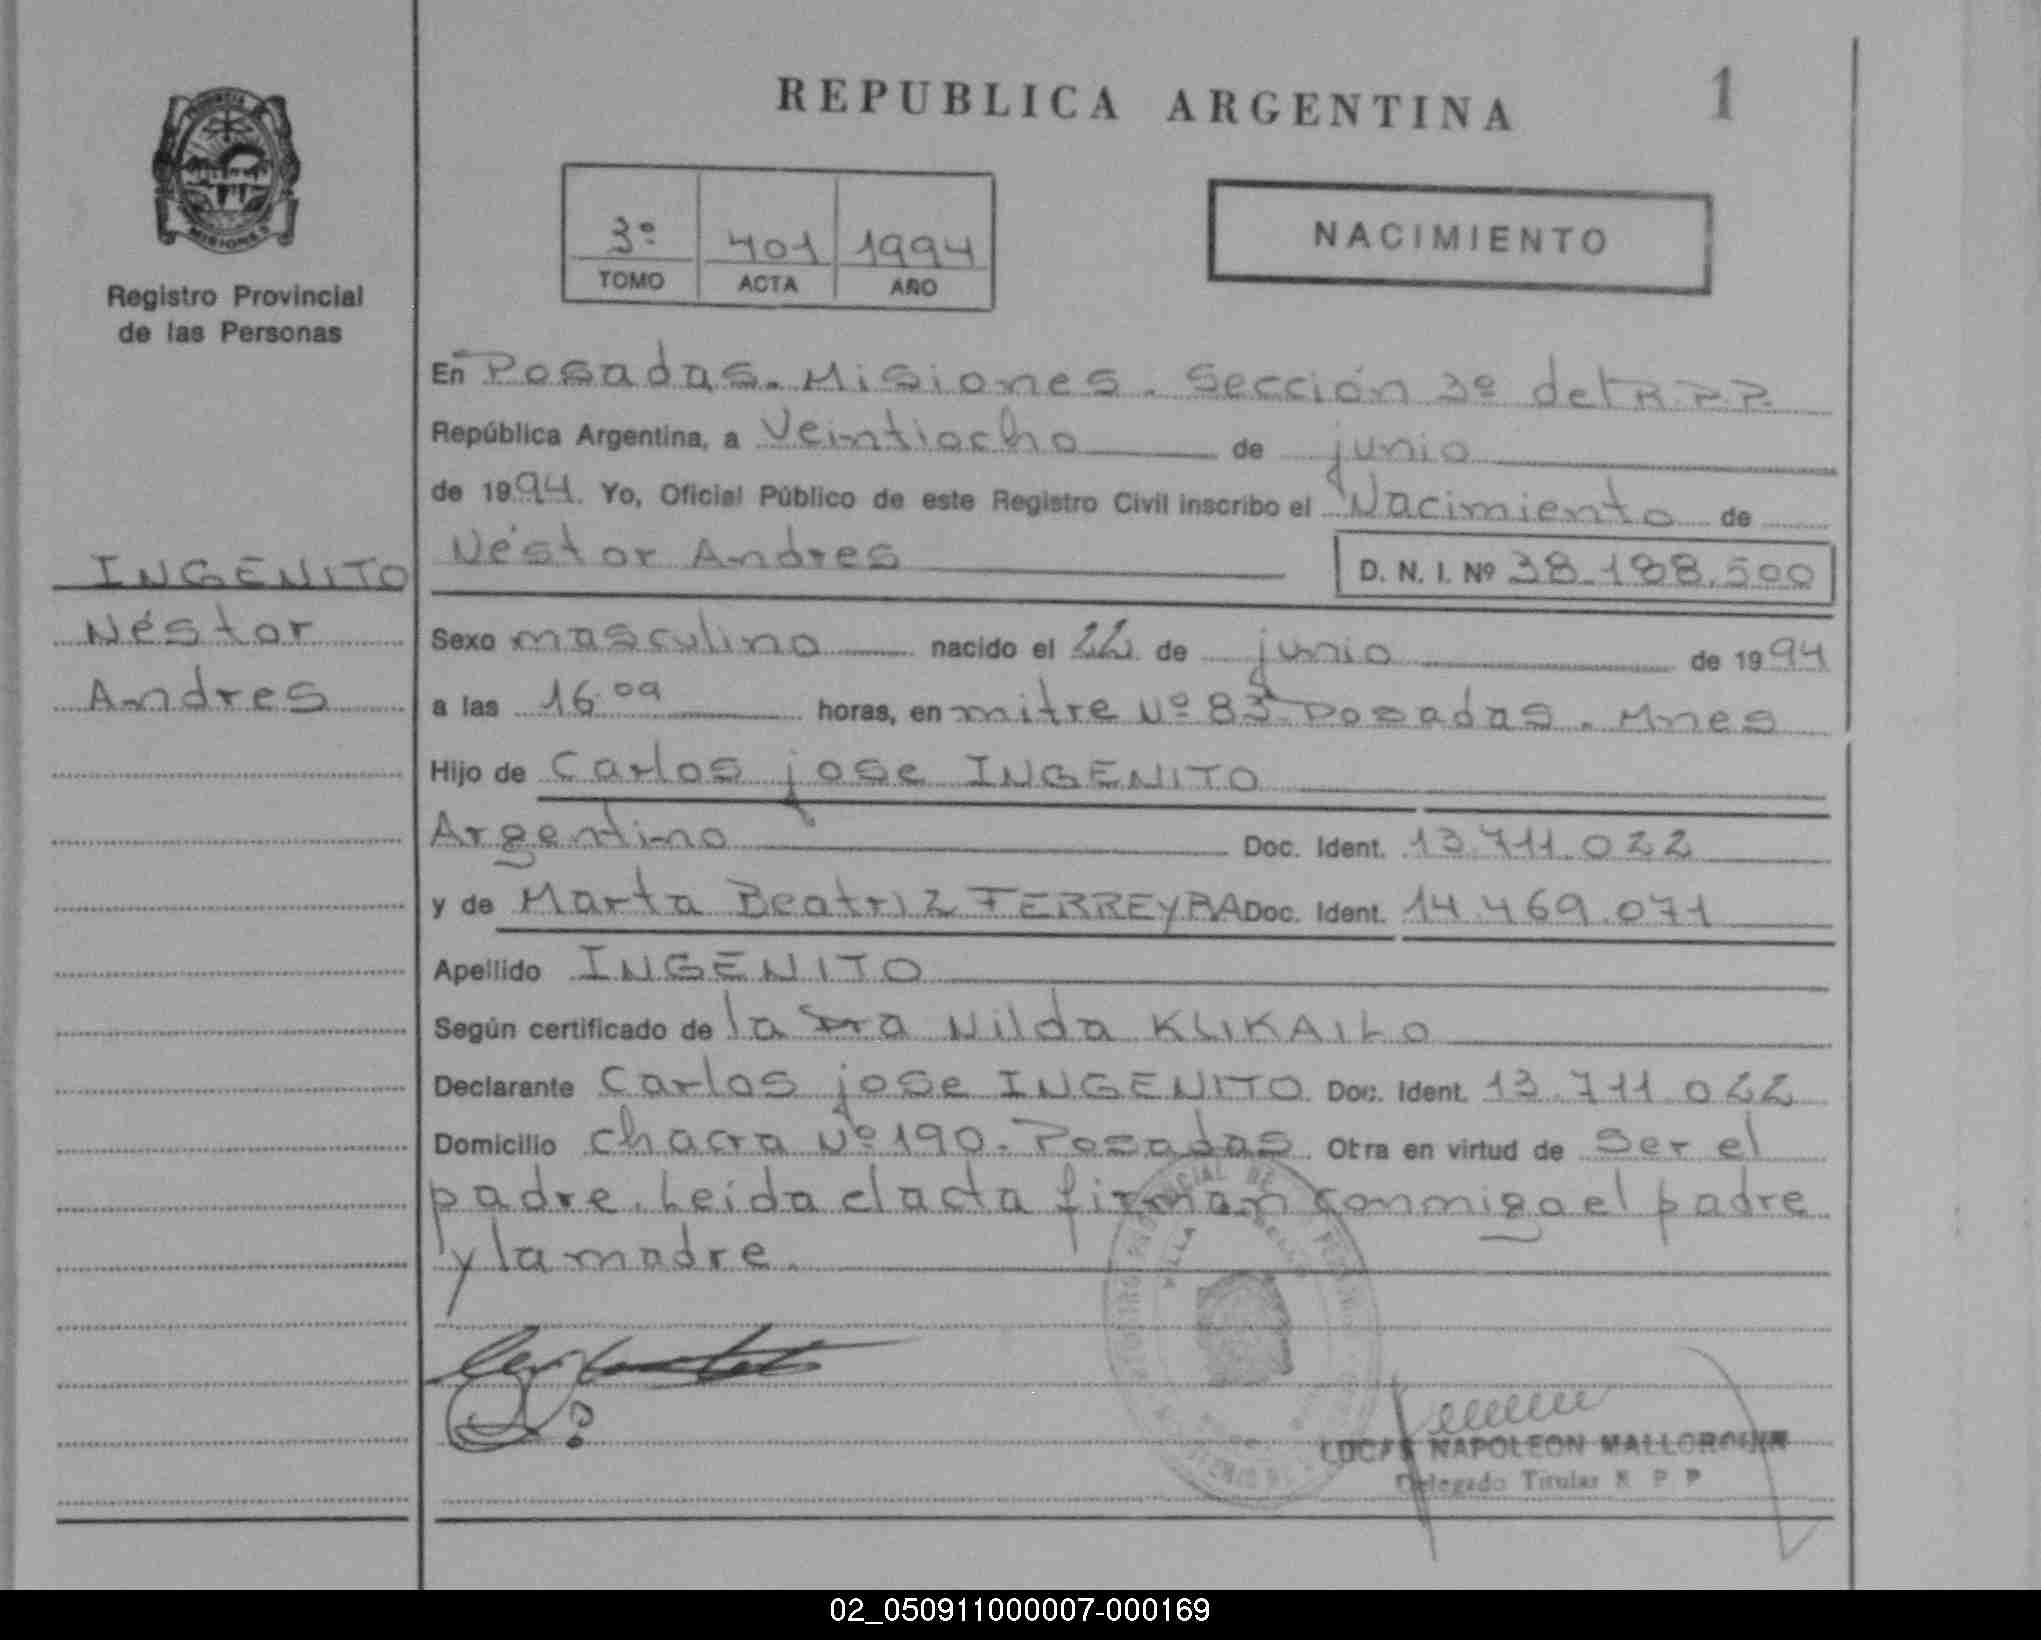 REPUBLICA ARGENTINA
1
PROVINCIA
MISIONES
Registro Provincial
de las Personas
3º 401 1994
TOMO ACTA AÑO
NACIMIENTO
En Posadas. Misiones. Sección 3º del R.P.P.
República Argentina, a Veintiocho de junio
de 1994. Yo, Oficial Público de este Registro Civil inscribo el Nacimiento de
Néstor Andres D. N. I. Nº 38.188.500
INGENITO
Néstor
Andres
Sexo masculino nacido el 22 de junio de 1994
a las 16 09 horas, en mitre Nº 83 Posadas. Mnes
Hijo de Carlos jose INGENITO
Argentino Doc. Ident. 13.711.022
y de Marta Beatriz FERREyRA Doc. Ident. 14.469.071
Apellido INGENITO
Según certificado de la Dra Nilda KLIKAILO
Declarante Carlos jose INGENITO Doc. Ident. 13.711.022
Domicilio chacra Nº 190. Posadas. Otra en virtud de Ser el
padre. Leida el acta firman conmigo el padre
y la madre.
VILLA
LUCAS NAPOLEON MALLORQUIN
Delegado Titular R P P
02_050911000007-000169